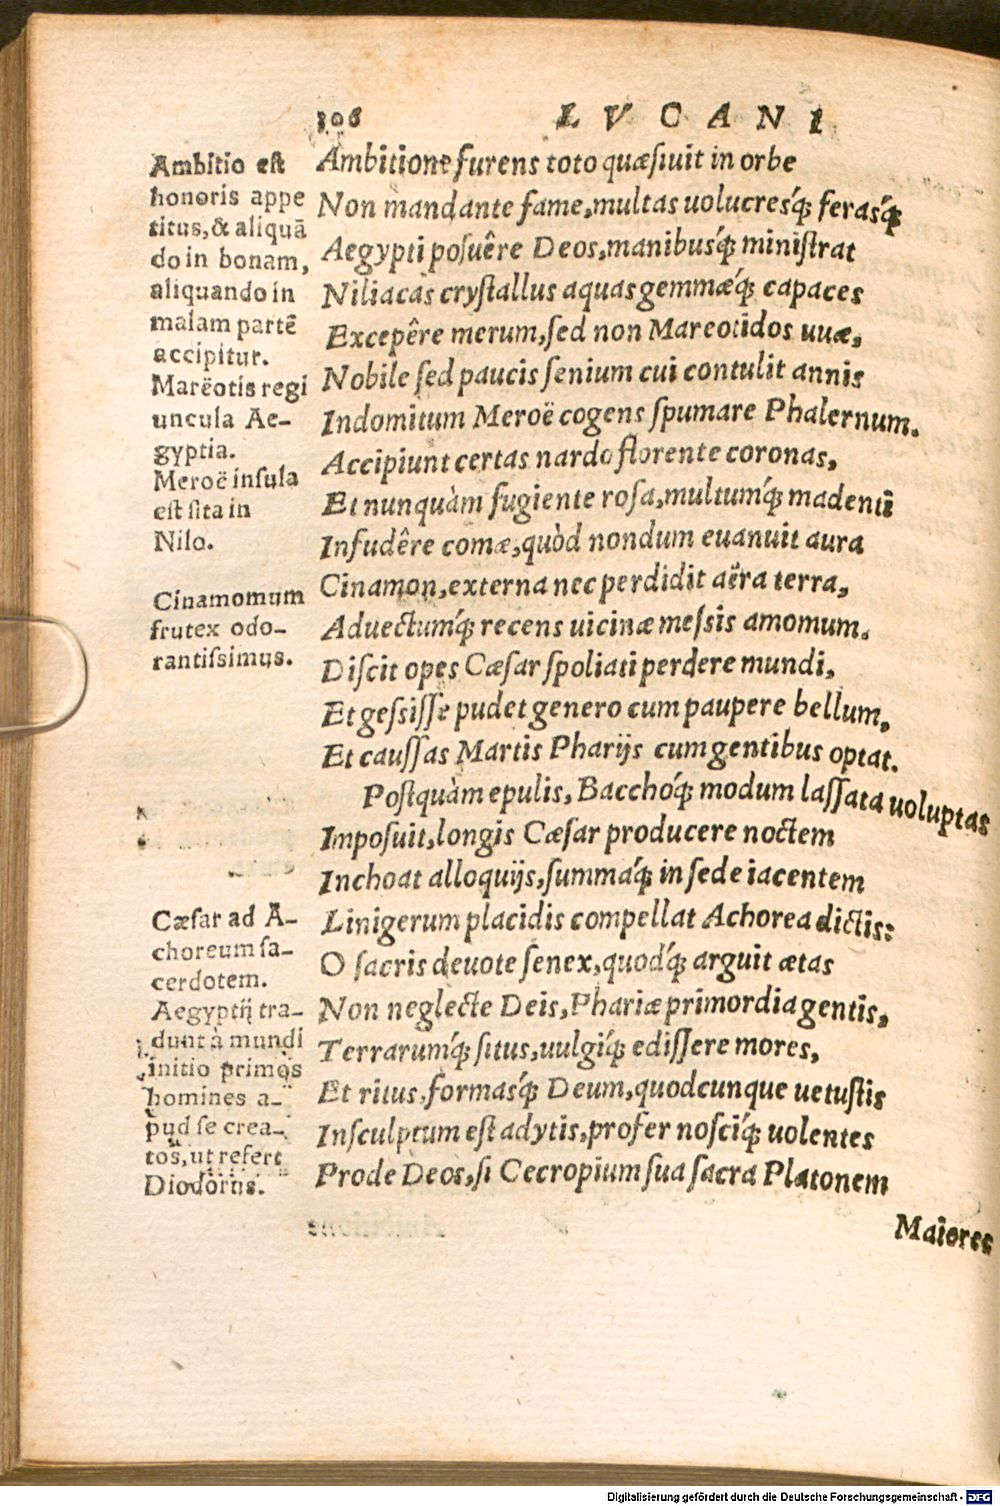 306 LVCANI
Ambitione furens toto quæsiuit in orbe
Non mandante fame, multas uolucresq́; ferasq́;
Aegypti posuêre Deos, manibusq́; ministrat
Niliacas crystallus aquas gemmæq́; capaces
Excepêre merum, sed non Mareotidos uuæ,
Nobile sed paucis senium cui contulit annis
Indomitum Meroë cogens spumare Phalernum.
Accipiunt certas nardo florente coronas,
Et nunquàm fugiente rosa, multumq́; madenti
Infudêre comæ, quòd nondum euanuit aura
Cinamon, externa nec perdidit aëra terra,
Aduectumq́; recens uicinæ messis amomum.
Discit opes Cæsar spoliati perdere mundi,
Et gessisse pudet genero cum paupere bellum,
Et caussas Martis Pharijs cum gentibus optat.
Postquàm epulis, Bacchoq́; modum lassata uoluptas
Imposuit, longis Cæsar producere noctem
Inchoat alloquijs, summaq́; in sede iacentem
Linigerum placidis compellat Achorea dictis:
O sacris deuote senex, quodq́; arguit ætas
Non neglecte Deis, Phariæ primordia gentis,
Terrarumq́; situs, uulgiq́; edissere mores,
Et ritus, formasq́; Deum, quodcunque uetustis
Insculptum est adytis, profer nosciq́; uolentes
Prode Deos, si Cecropium sua sacra Platonem
Maiores
Ambitio est
honoris appe
titus, & aliquā
do in bonam,
aliquando in
malam partē
accipitur.
Marëotis regi
uncula Ae-
gyptia.
Meroë insula
est sita in
Nilo.
Cinamomum
frutex odo-
rantissimus.
Cæsar ad A-
choreum sa-
cerdotem.
Aegyptij tra-
dunt à mundi
initio primos
homines a-
pud se crea-
tos, ut refert
Diodorus.
Digitalisierung gefördert durch die Deutsche Forschungsgemeinschaft - DFG